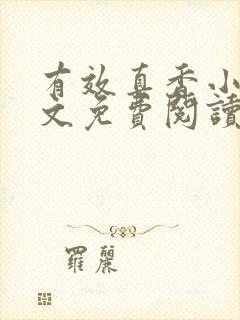 有效直香小
文免費閱讀
羅麗